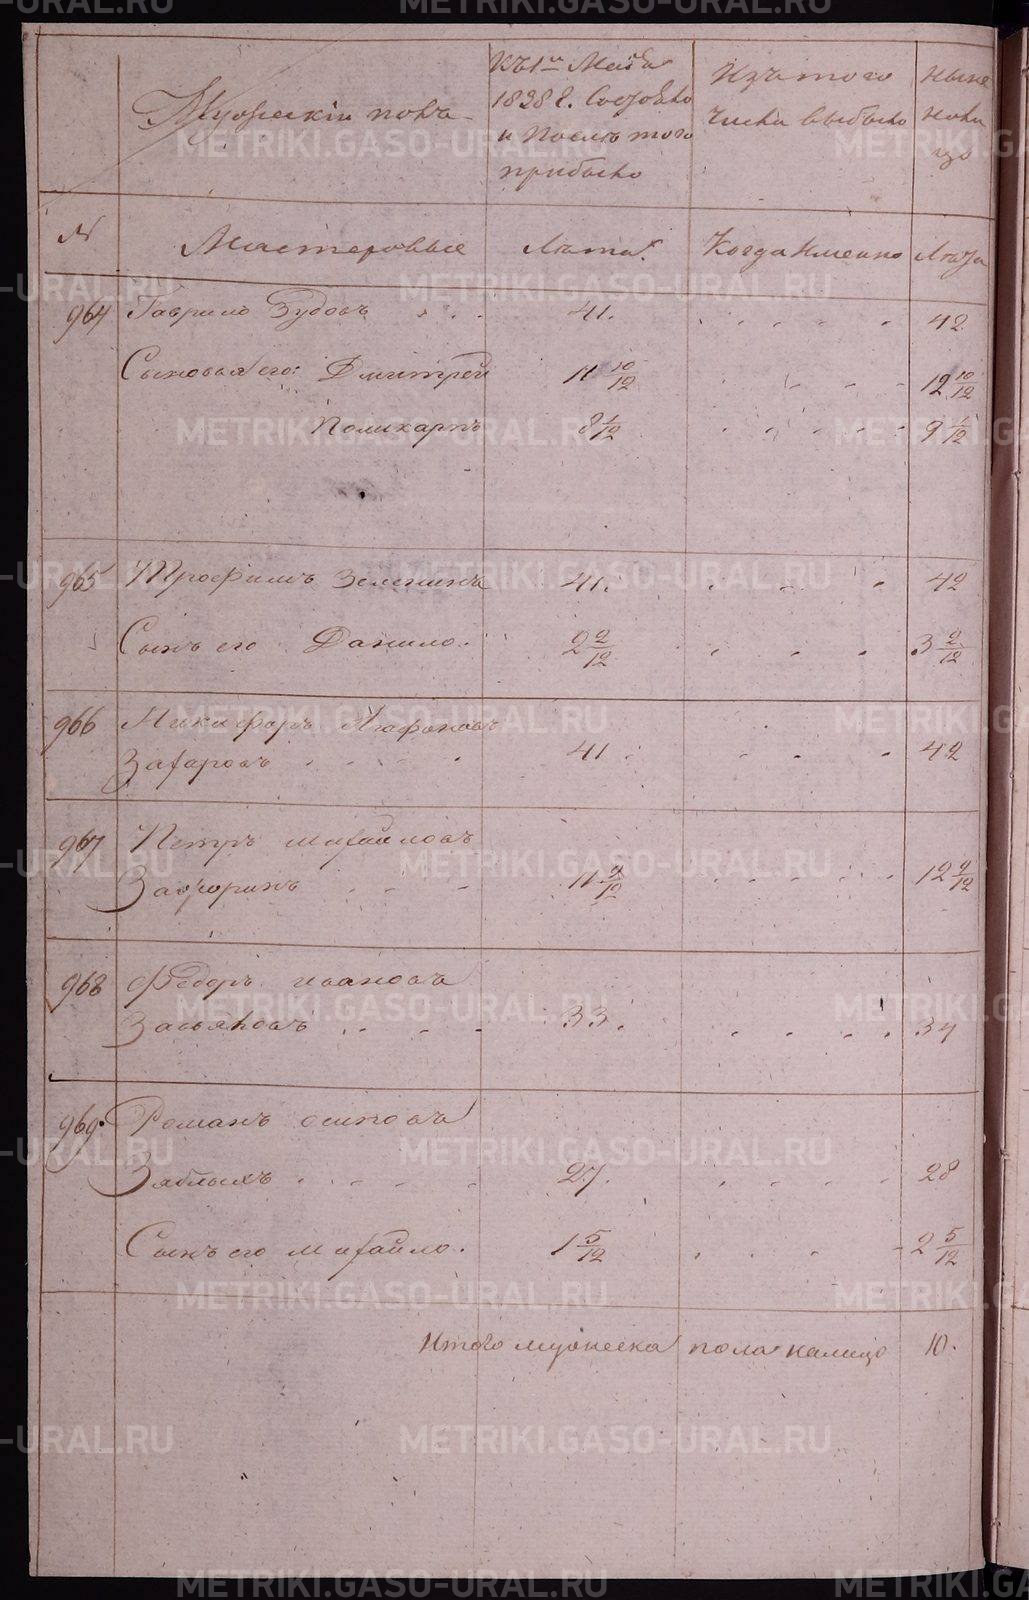 Мужескiй полъ
Къ 1му Маiя
1828 г. Состояло
и После того
прибыло
Изъ того
числа выбыло
ныне
нали
цо
№
Мастеровые
Лета
Когда Имянно
Лета
964 Гаврило Зубовъ 41. 42
Сыновья его: Дмитрей 11 10/12 12 10/12
Поликарпъ 8 1/12 9 1/12
965 Трофимъ Зеленинъ 41. 42
Сынъ его Данило. 2 2/12 3 2/12
966 Никифоръ Агафоновъ
Захаровъ 41 42
967 Петръ михайловъ
11 9/12 12 9/12
968 Федоръ ивановъ
33. 34
969 Романъ осиповъ
Зяблыхъ 27. 28
Сынъ его михайло. 1 5/12 2 5/12
Итого мужеска пола налицо 10.
METRIKI.GASO-URAL.RU